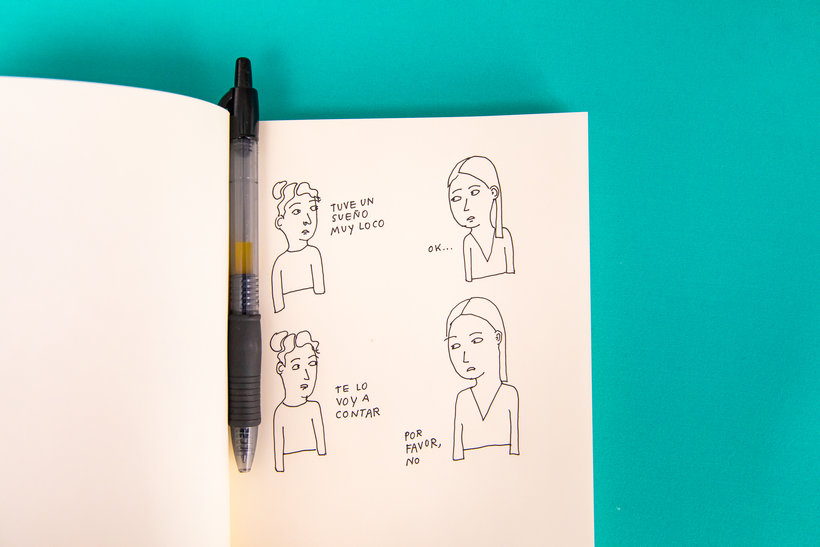 TUVE UN
SUEÑO
MUY LOCO
OK...
TE LO
VOY A
CONTAR
POR
FAVOR,
NO